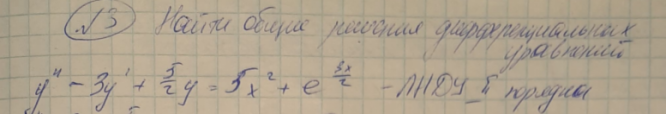 №3 Найти общие решения дифференциальных
уравнений
y'' - 3y' + 5/2 y = 5x² + e^(3x/2) - ЛНДУ II порядка